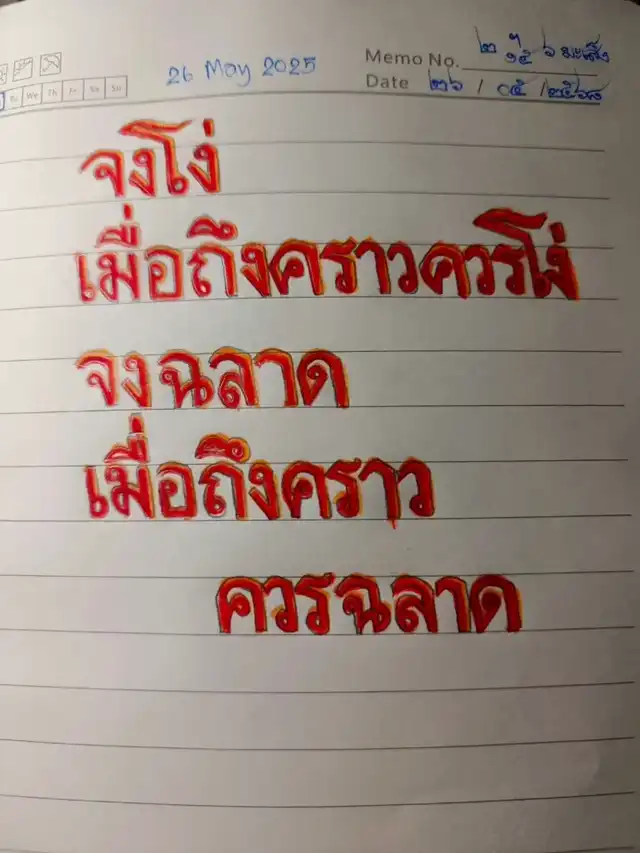 26 May 2025
Memo No. ๒ ๑๕ ๖ มะเส็ง
Date ๒๖ / ๐๕ / ๒๕๖๘
Tu We Th Fr Sa Su
จงโง่
เมื่อถึงคราวควรโง่
จงฉลาด
เมื่อถึงคราว
ควรฉลาด